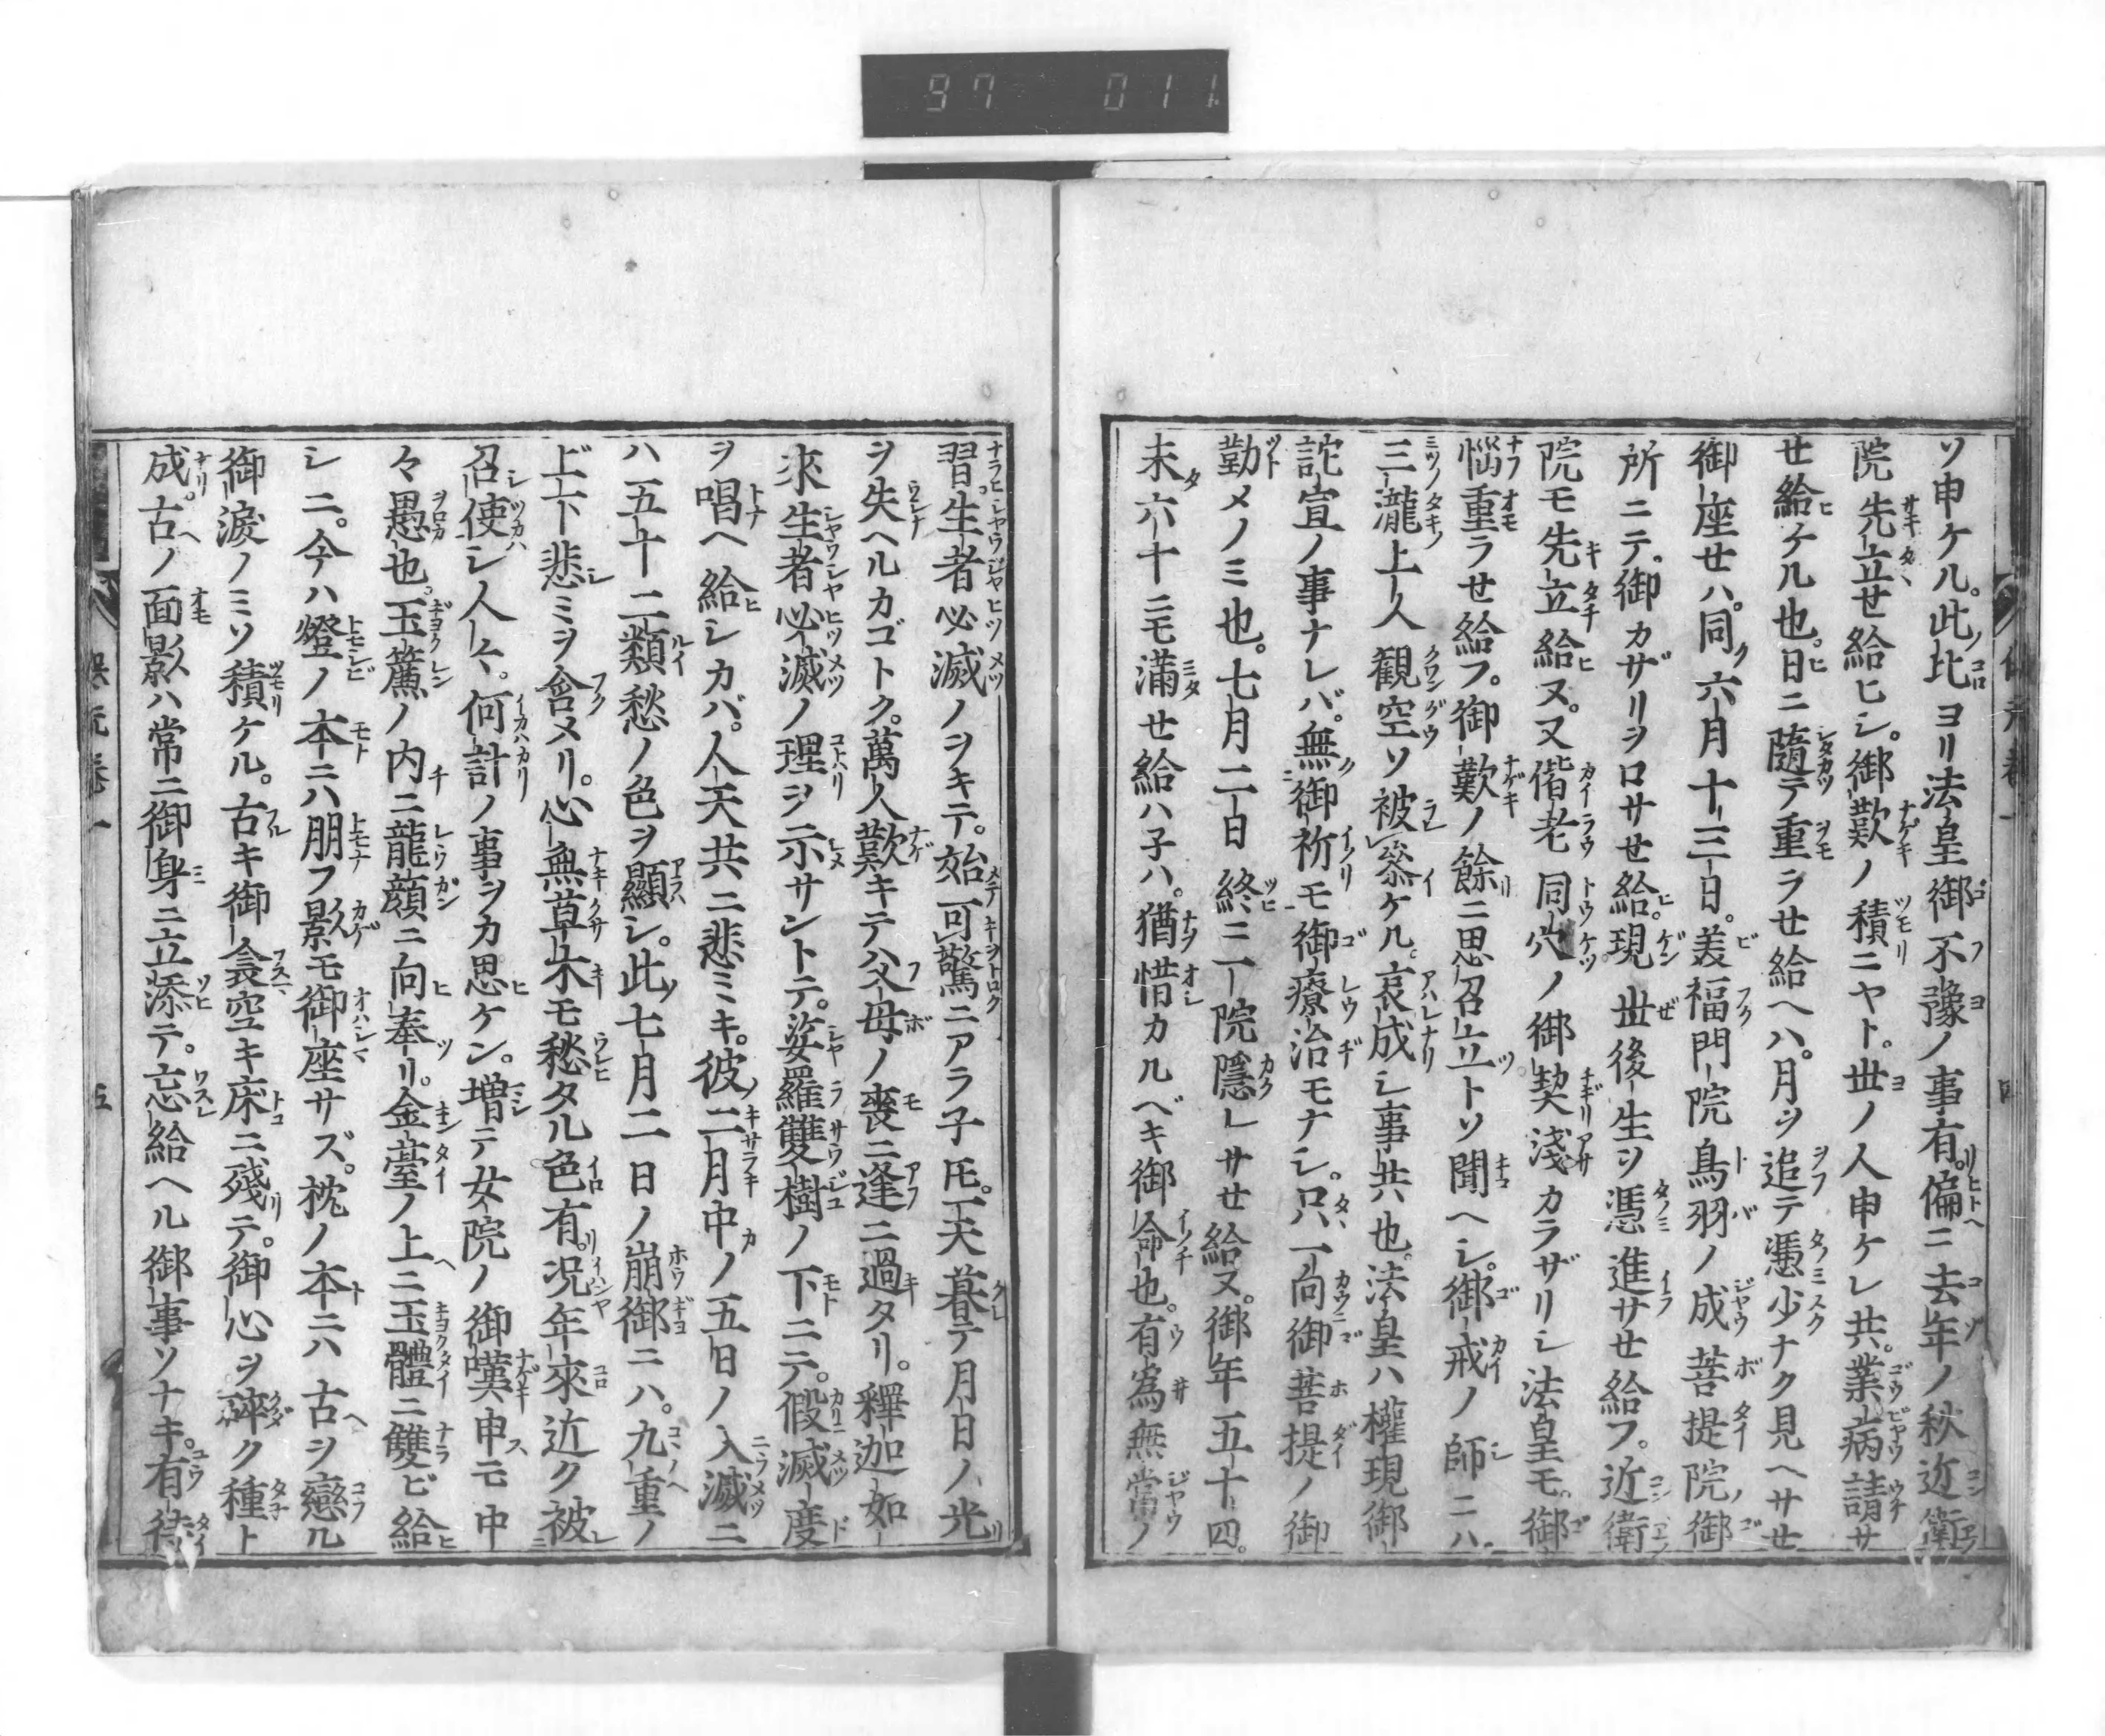 97 011
ソ申ケル。此比ヨリ法皇御不豫ノ事有。偏ニ去年ノ秋近衛
院先立セ給ヒシ。御歎ノ積ニヤト。世ノ人申ケレ共。業病請サ
セ給ケル也。日ニ隨テ重ラセ給ヘハ。月ヲ追テ憑少ナク見ヘサセ
御座セハ。同六月十三日。美福門院鳥羽ノ成菩提院御
所ニテ。御カザリヲロサセ給。現世後生ヲ憑進サセ給フ。近衛
院モ先立給ヌ。又偕老同穴ノ御契淺カラザリシ法皇モ。御
惱重ラせ給フ。御歎ノ餘ニ思召立トソ聞ヘシ。御戒ノ師ニハ
三瀧上人觀空ソ被參ケル。哀成シ事共也。法皇ハ權現御
詑宣ノ事ナレバ。無御祈モ御療治モナシ。只一向御菩提ノ御
勤メノミ也。七月二日終ニ一院隱レサせ給ヌ。御年五十四。
未六十ニモ滿せ給ハ子ハ。猶惜カルベキ御命也。有爲無常ノ
習。生者必滅ノヲキテ。始可驚ニアラ子𪜈。一天暮テ月日ノ光
ヲ失ヘルカゴトク。萬人歎キテハ父母ノ喪ニ逢ニ過タリ。釋迦如
來生者必滅ノ理ヲ示サントテ。娑羅雙樹ノ下ニテ。假滅度
ヲ唱ヘ給シカバ。人天共ニ悲ミキ。彼二月中ノ五日ノ入滅ニ
ハ五十二類愁ノ色ヲ顯シ。此七月二日ノ崩御ニハ。九重ノ
上下悲ミヲ含メリ。心無草木モ愁タル色有。況年來近ク被
召使シ人々。何計ノ事ヲカ思ケン。増テ女院ノ御嘆申モ中
々愚也。玉簾ノ内ニ龍顏ニ向奉リ。金臺ノ上ニ玉體ニ雙ビ給
シニ。今ハ燈ノ本ニハ朋フ影モ御座サズ。枕ノ本ニハ古ヲ戀ル
御淚ノミソ積ケル。古キ御衾空キ床ニ殘テ。御心ヲ碎ク種ト
成。古ノ面影ハ常ニ御身ニ立添テ。忘給ヘル御事ソナキ。有待
保元卷一
五